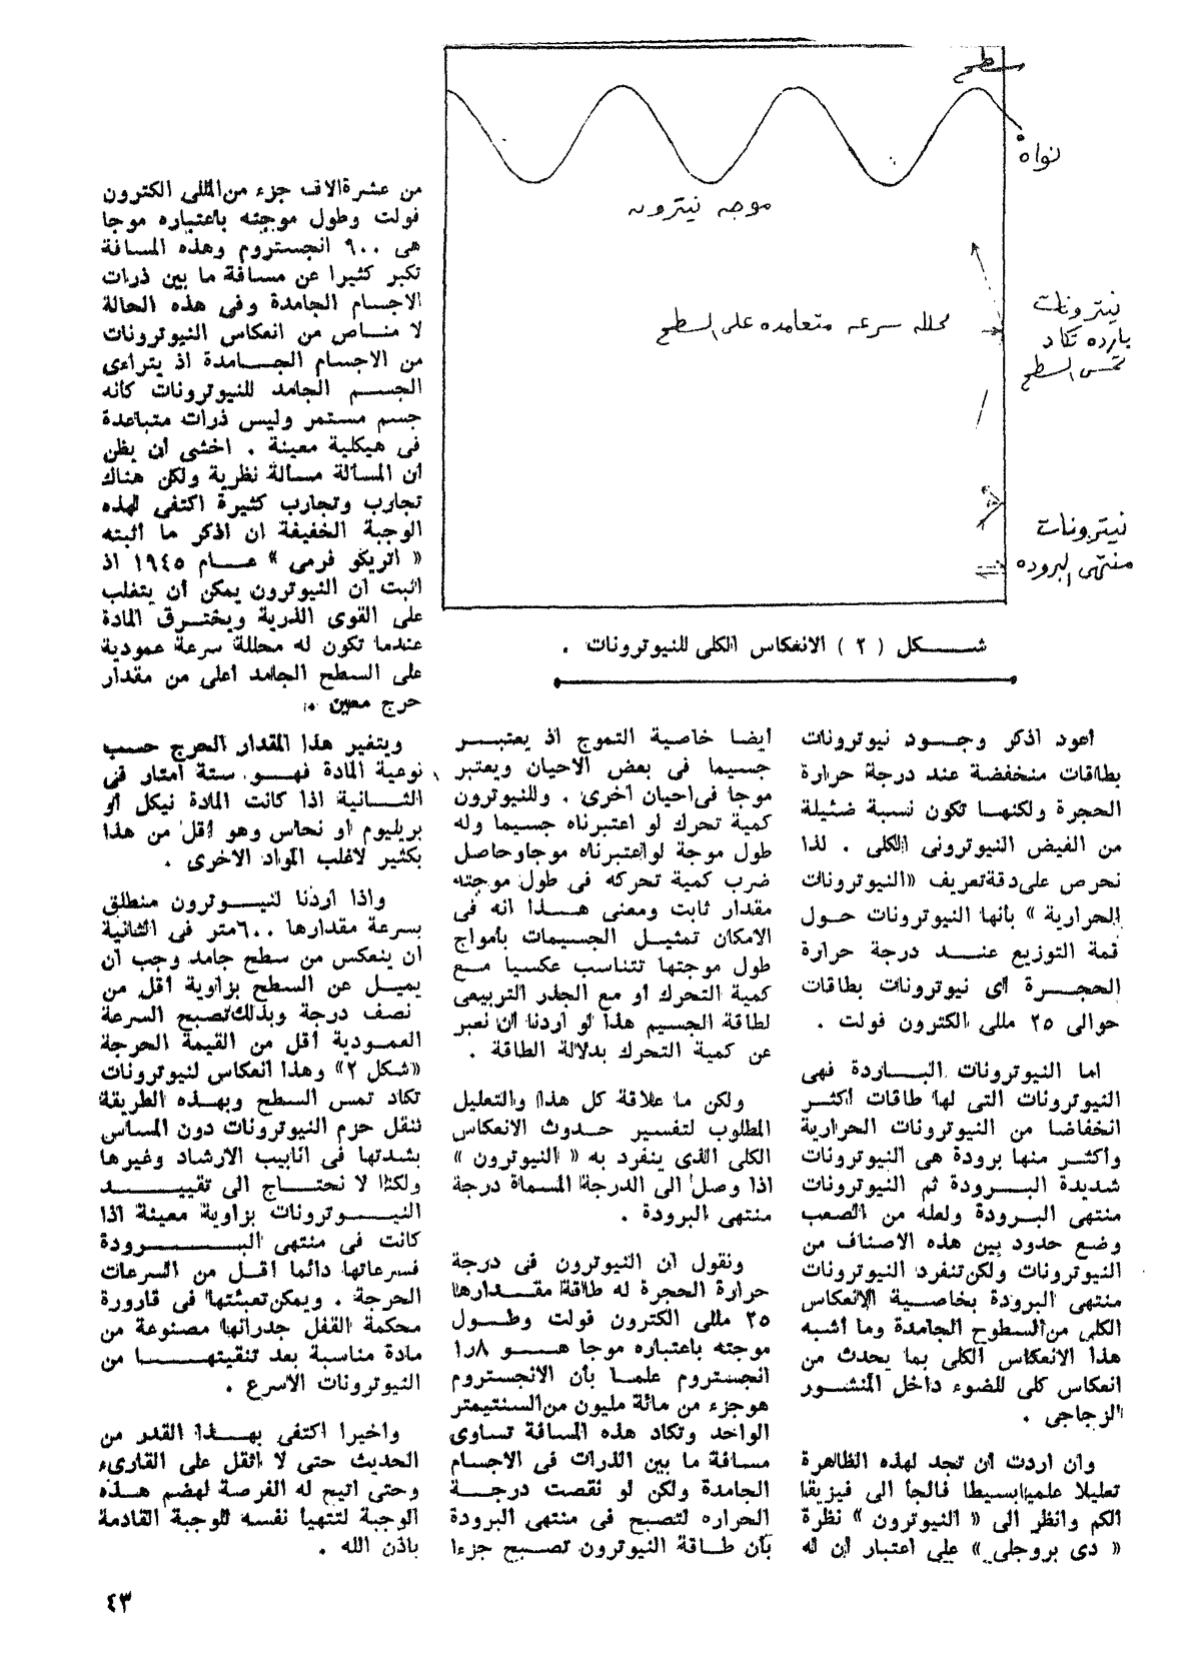 سطح
نواه
موجه نيترون
نيترونات
بارده تكاد
تمس السطح
محلله سرعه متعامده على السطح
نيترونات
منتهى البروده
شكل ( ٢ ) الانعكاس الكلى للنيوترونات .
اعود اذكر وجود نيوترونات
بطاقات منخفضة عند درجة حرارة
الحجرة ولكنها تكون نسبة ضئيلة
من الفيض النيوترونى الكلى . لذا
نحرص على دقة تعريف «النيوترونات
الحرارية » بأنها النيوترونات حول
قمة التوزيع عند درجة حرارة
الحجرة أى نيوترونات بطاقات
حوالى ٢٥ مللى الكترون فولت .
اما النيوترونات الباردة فهى
النيوترونات التى لها طاقات أكثر
انخفاضا من النيوترونات الحرارية
وأكثر منها برودة هى النيوترونات
شديدة البرودة ثم النيوترونات
منتهى البرودة ولعله من الصعب
وضع حدود بين هذه الاصناف من
النيوترونات ولكن تنفرد النيوترونات
منتهى البرودة بخاصية الانعكاس
الكلى من السطوح الجامدة وما أشبه
هذا الانعكاس الكلى بما يحدث من
انعكاس كلى للضوء داخل المنشور
الزجاجى .
وان اردت ان تجد لهذه الظاهرة
تعليلا علميا بسيطا فالجأ الى فيزيقا
الكم وانظر الى « النيوترون » نظرة
« دى بروجلى » على اعتبار ان له
ايضا خاصية التموج اذ يعتبر
جسيما فى بعض الاحيان ويعتبر
موجا فى احيان اخرى . وللنيوترون
كمية تحرك لو اعتبرناه جسيما وله
طول موجة لو اعتبرناه موجا وحاصل
ضرب كمية تحركه فى طول موجته
مقدار ثابت ومعنى هذا انه فى
الامكان تمثيل الجسيمات بأمواج
طول موجتها تتناسب عكسيا مع
كمية التحرك أو مع الجذر التربيعى
لطاقة الجسيم هذا لو أردنا ان نعبر
عن كمية التحرك بدلالة الطاقة .
ولكن ما علاقة كل هذا والتعليل
المطلوب لتفسير حدوث الانعكاس
الكلى الذى ينفرد به « النيوترون »
اذا وصل الى الدرجة المسماة درجة
منتهى البرودة .
ونقول أن النيوترون فى درجة
حرارة الحجرة له طاقة مقدارها
٢٥ مللى الكترون فولت وطول
موجته باعتباره موجا هو ١٫٨
انجستروم علما بأن الانجستروم
هو جزء من مائة مليون من السنتيمتر
الواحد وتكاد هذه المسافة تساوى
مسافة ما بين الذرات فى الاجسام
الجامدة ولكن لو نقصت درجة
الحراره لتصبح فى منتهى البرودة
بأن طاقة النيوترون تصبح جزءا
من عشرة الاف جزء من المللى الكترون
فولت وطول موجته باعتباره موجا
هى ٩٠٠ انجستروم وهذه المسافة
تكبر كثيرا عن مسافة ما بين ذرات
الاجسام الجامدة وفى هذه الحالة
لا مناص من انعكاس النيوترونات
من الاجسام الجامدة اذ يتراءى
الجسم الجامد للنيوترونات كأنه
جسم مستمر وليس ذرات متباعدة
فى هيكلية معينة . اخشى ان يظن
أن المسألة مسألة نظرية ولكن هناك
تجارب وتجارب كثيرة اكتفى لهذه
الوجبة الخفيفة ان اذكر ما أثبته
« اتريكو فرمى » عام ١٩٤٥ اذ
اثبت أن النيوترون يمكن أن يتغلب
على القوى الذرية ويخترق المادة
عندما تكون له محللة سرعة عمودية
على السطح الجامد أعلى من مقدار
حرج معين .
ويتغير هذا المقدار الحرج حسب
نوعية المادة فهو ستة أمتار فى
الثانية اذا كانت المادة نيكل أو
بريليوم أو نحاس وهو أقل من هذا
بكثير لاغلب المواد الاخرى .
واذا أردنا لنيوترون منطلق
بسرعة مقدارها ٦٠٠ متر فى الثانية
أن ينعكس من سطح جامد وجب أن
يميل عن السطح بزاوية أقل من
نصف درجة وبذلك تصبح السرعة
العمودية أقل من القيمة الحرجة
«شكل ٢» وهذا انعكاس لنيوترونات
تكاد تمس السطح وبهذه الطريقة
تنقل حزم النيوترونات دون المساس
بشدتها فى انابيب الارشاد وغيرها
ولكنا لا نحتاج الى تقييد
النيوترونات بزاوية معينة اذا
كانت فى منتهى البرودة
فسرعاتها دائما أقل من السرعات
الحرجة . ويمكن تعبئتها فى قارورة
محكمة القفل جدرانها مصنوعة من
مادة مناسبة بعد تنقيتها من
النيوترونات الاسرع .
واخيرا اكتفى بهذا القدر من
الحديث حتى لا اثقل على القارىء
وحتى اتيح له الفرصة لهضم هذه
الوجبة لتتهيأ نفسه للوجبة القادمة
باذن الله .
٤٣